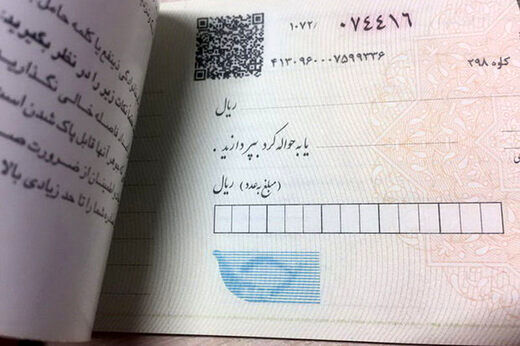 ۱۰۷۲/ ۰۷۴۴۱۶
۴۱۳۰۹۶۰۰۰۷۵۹۹۳۳۶
۲۹۸
ریال
یا به حواله کرد بپردازید .
(مبلغ به عدد) ریال
ذینفع یا کلمه حامل
زیر را در نظر بگیرید
فاصله خالی نگذارید
جوهر آنها قابل پاک شدن است
از ضرورت
شما را تا حد زیادی بالا